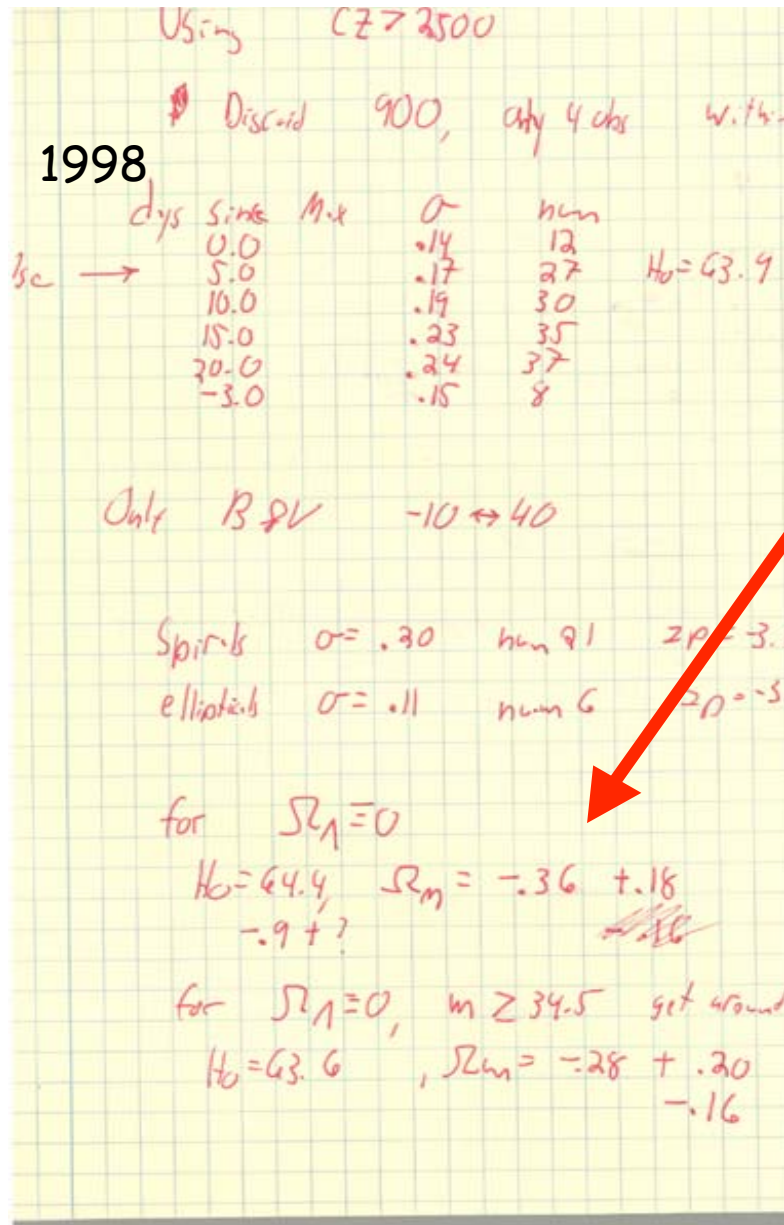 Using CZ > 2500
Discoid 900, only 4 obs within
1998
dys since Max σ num
0.0 .14 12
→ 5.0 .17 27 H₀=63.9
10.0 .19 30
15.0 .23 35
20.0 .24 37
-3.0 .15 8
Only B & V -10 ↔ 40
Spirals σ= .20 num 21 zp = -3.
ellipticals σ= .11 num 6 zp = -3
for Ω_Λ≡0
H₀=64.4, Ω_m = -.36 +.18
-.9 + ?
for Ω_Λ≡0, m ≥ 34.5 get around
H₀=63.6 , Ω_m = -.28 + .20
-.16